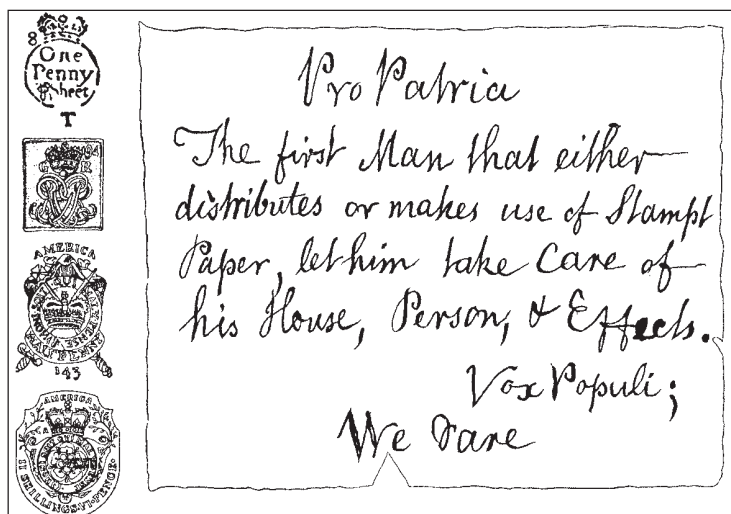 8
One
Penny
Sheet
T
AMERICA
143
AMERICA
II SHILLINGS·VI·PENCE
Pro Patria
The first Man that either
distributes or makes use of Stampt
Paper, let him take Care of
his House, Person, & Effects.
Vox Populi;
We dare